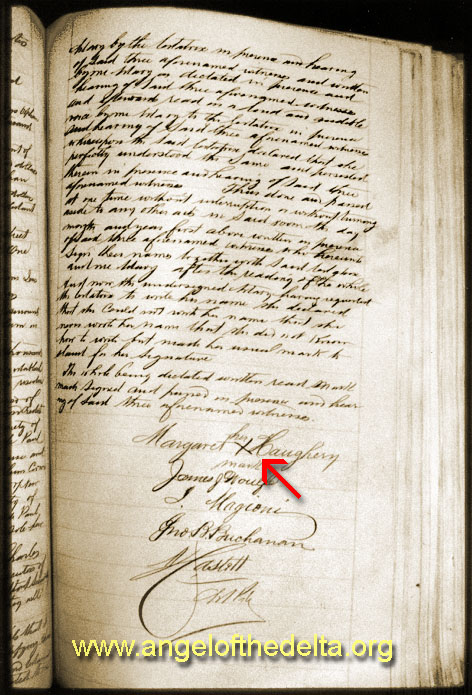 Notary by the testatrix in presence and hearing
of Said three aforenamed witnesses and written
by me Notary as declared in presence and
hearing of Said three aforenamed witnesses
and afterward read in a loud and audible
voice by me Notary to the testatrix in presence
and hearing of Said three aforenamed witnesses
whereupon the Said testatrix declared that she
perfectly understood the Same and persisted
therein in presence and hearing of Said three
aforenamed witnesses Thus done and passed
at one time without interruption or without turning
aside to any other acts in Said room the day
month and year first above written in presence
of Said three aforenamed witnesses who hereunto
Sign their names together with Said testatrix
and me Notary after the reading of the whole
And now the undersigned Notary having requested
the testatrix to write her name She declared
that she Could not write her name that she
never wrote her name that she did not know
how to write but made her usual mark to
stand for her signature
The whole being declared written read mark
made Signed and passed in presence and hear
ing of Said three aforenamed witnesses.
Margaret her X Haughery
mark
James J
J. Magioni
Jno B Buchanan
www.angelofthedelta.org